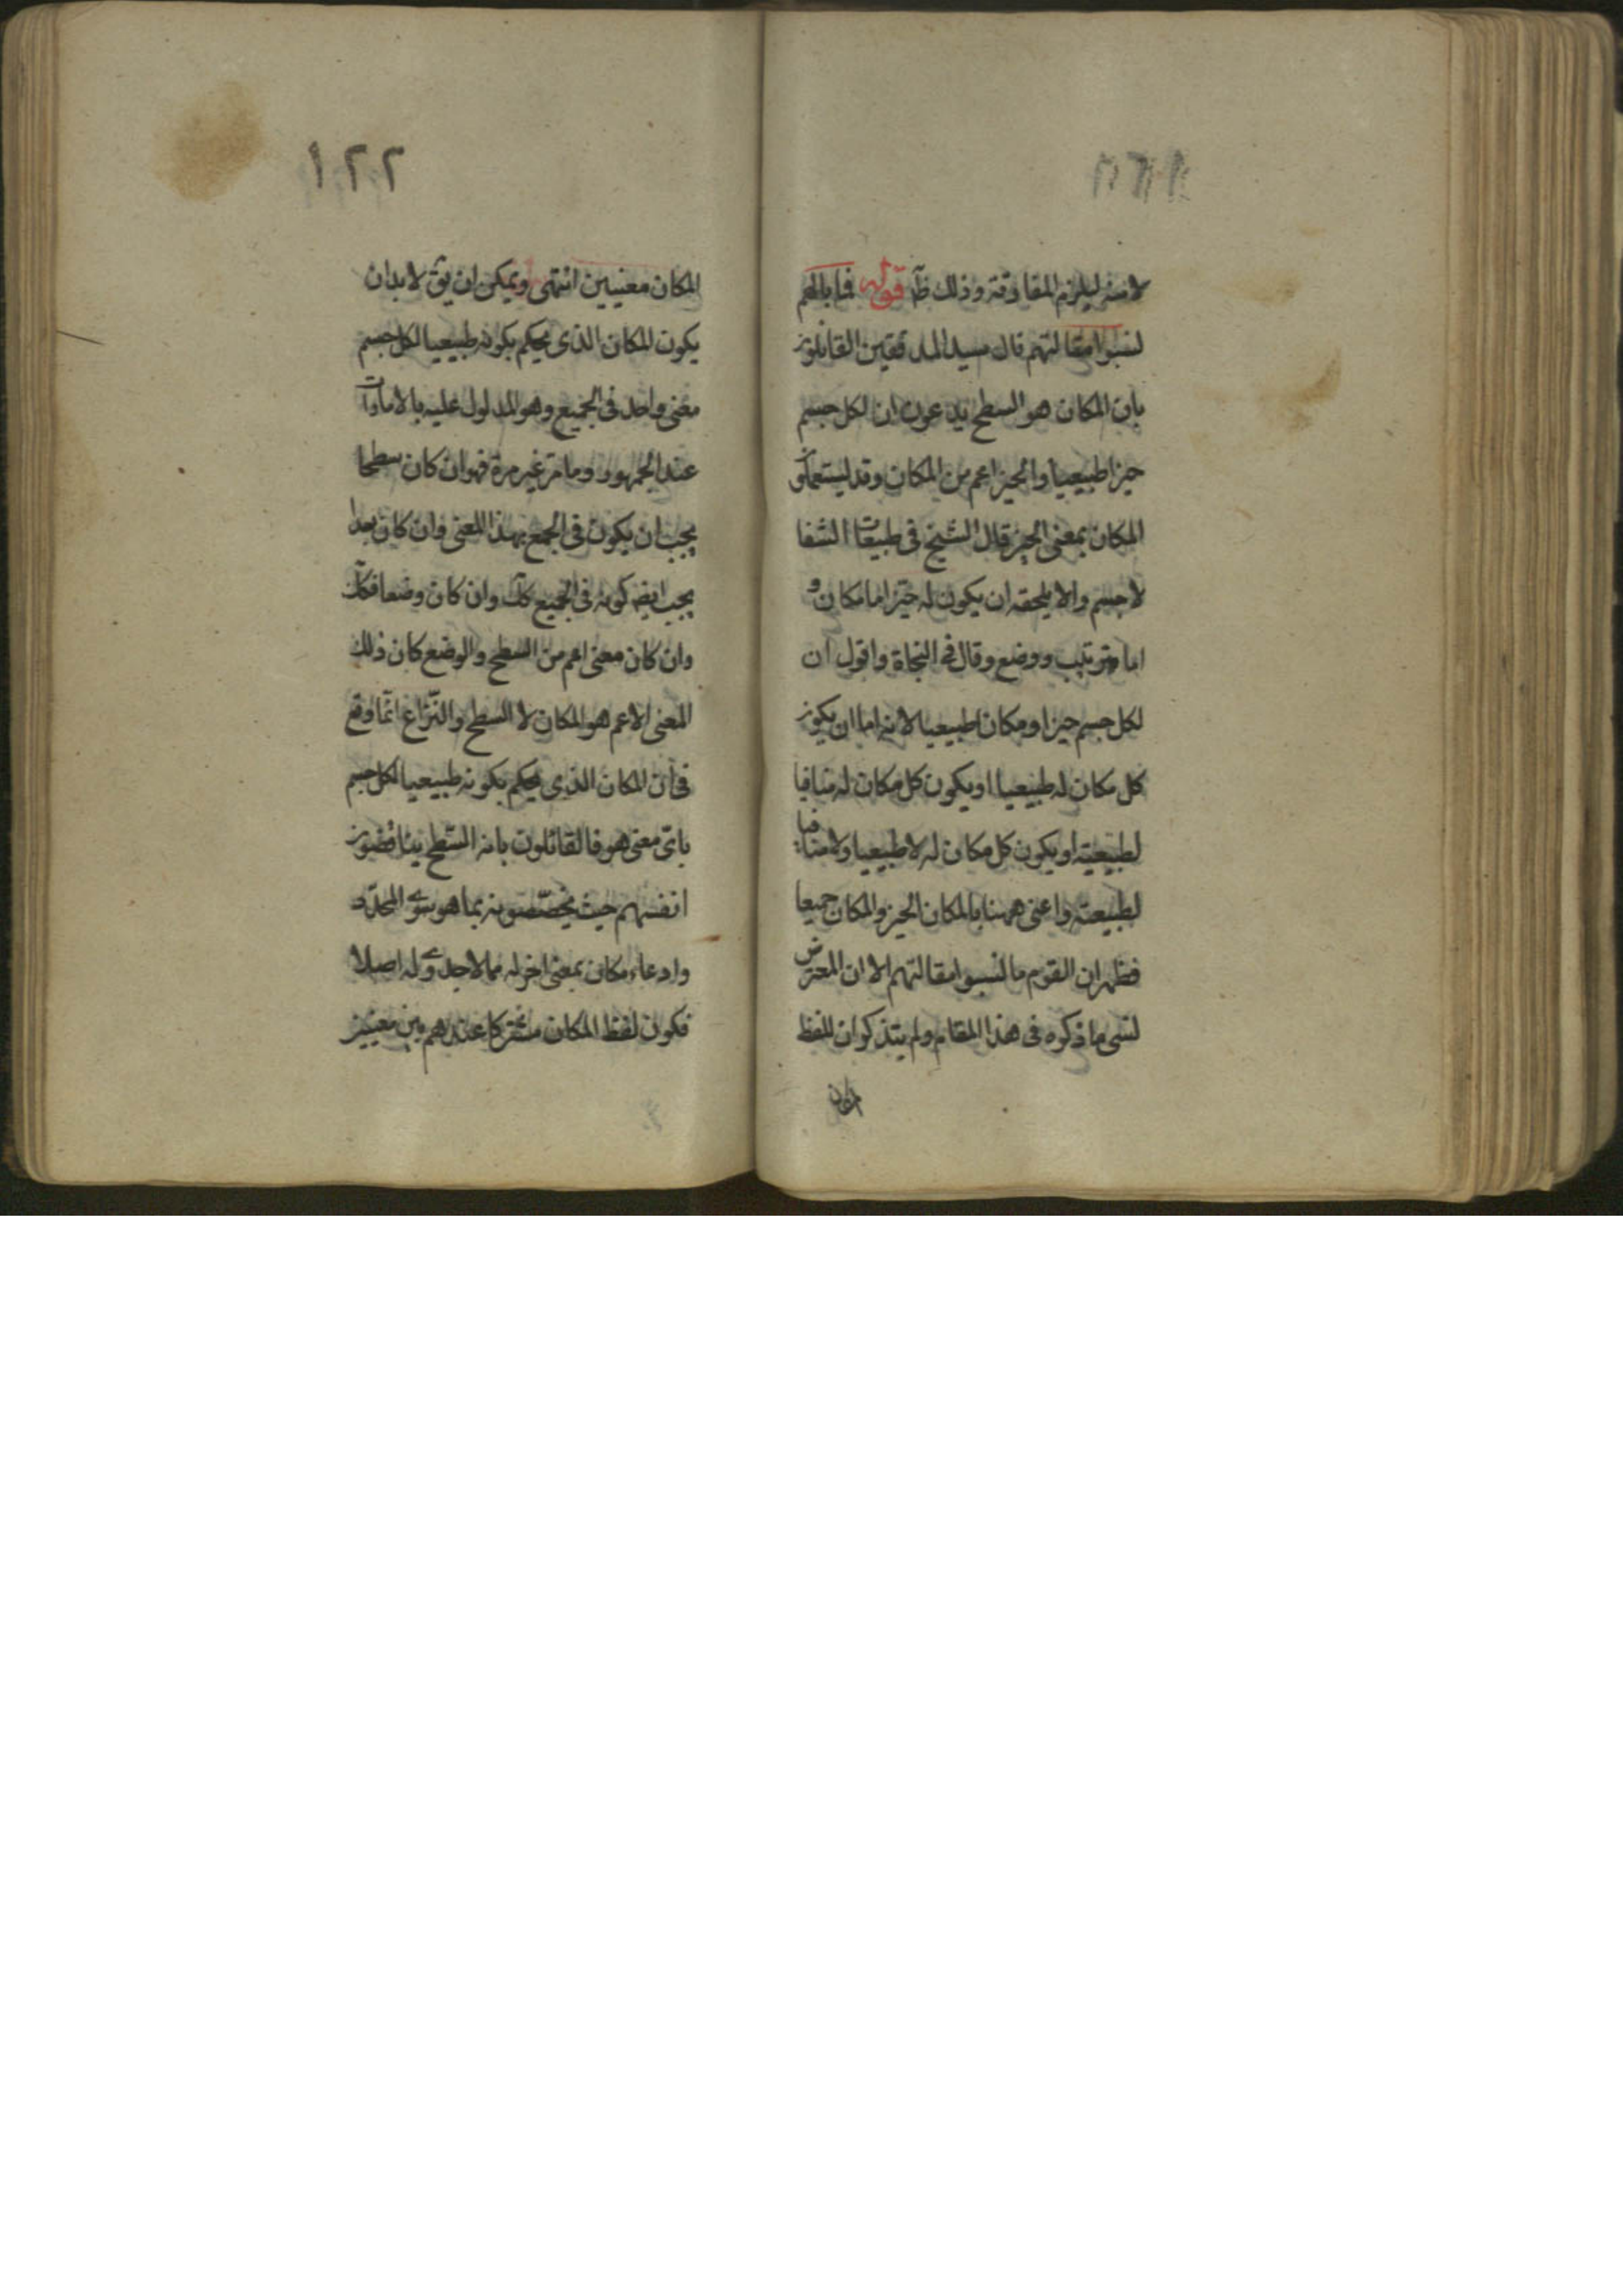 لانه ليلزم المفارقة وذلك ظ قوله فما بالهم
لنسوا مقالتهم قال سيد المدققين القائلون
بان المكان هو السطح يدعون ان لكل جسم
حيزا طبيعيا والحيز اعم من المكان وقد يستعملون
المكان بمعنى الحيز قال الشيخ في طبيعات الشفا
لا جسم والا يلحقه ان يكون له حيز اما مكان و
اما ترتيب ووضع وقال في النجاة واقول ان
لكل جسم حيزا ومكانا طبيعيا لانه اما ان يكون
كل مكان له طبيعيا او يكون كل مكان له منافيا
لطبيعته او يكون كل مكان له لا طبيعيا ولا منافيا
لطبيعته واعنى ههنا بالمكان الحيز والمكان جميعا
فظهر ان القوم ما نسوا مقالتهم الا ان المعترض
نسى ما ذكروه في هذا المقام ولم يتذكر ان للفظ
المكان
١٢٢
المكان معنيين انتهى ويمكن ان يق لا بد ان
يكون المكان الذى يحكم بكونه طبيعيا لكل جسم
معنى واحد في الجميع وهو المدلول عليه بالامارات
عند الجمهور وما مر غير مرة فهو ان كان سطحا
يجب ان يكون في الجميع بهذا المعنى وان كان بعدا
يجب ايض كونه في الجميع كك وان كان وضعا فكك
وان كان معنى اعم من السطح والوضع كان ذلك
المعنى الاعم هو المكان لا السطح والنزاع انما وقع
في ان المكان الذى يحكم بكونه طبيعيا لكل جسم
باى معنى هو فالقائلون بانه السطح يناقضون
انفسهم حيث يخصصونه بما هو سوى المحدد
وادعاء مكان بمعنى اخر له مما لا جدوى له اصلا
فكون لفظ المكان مشتركا عندهم بين معنيين